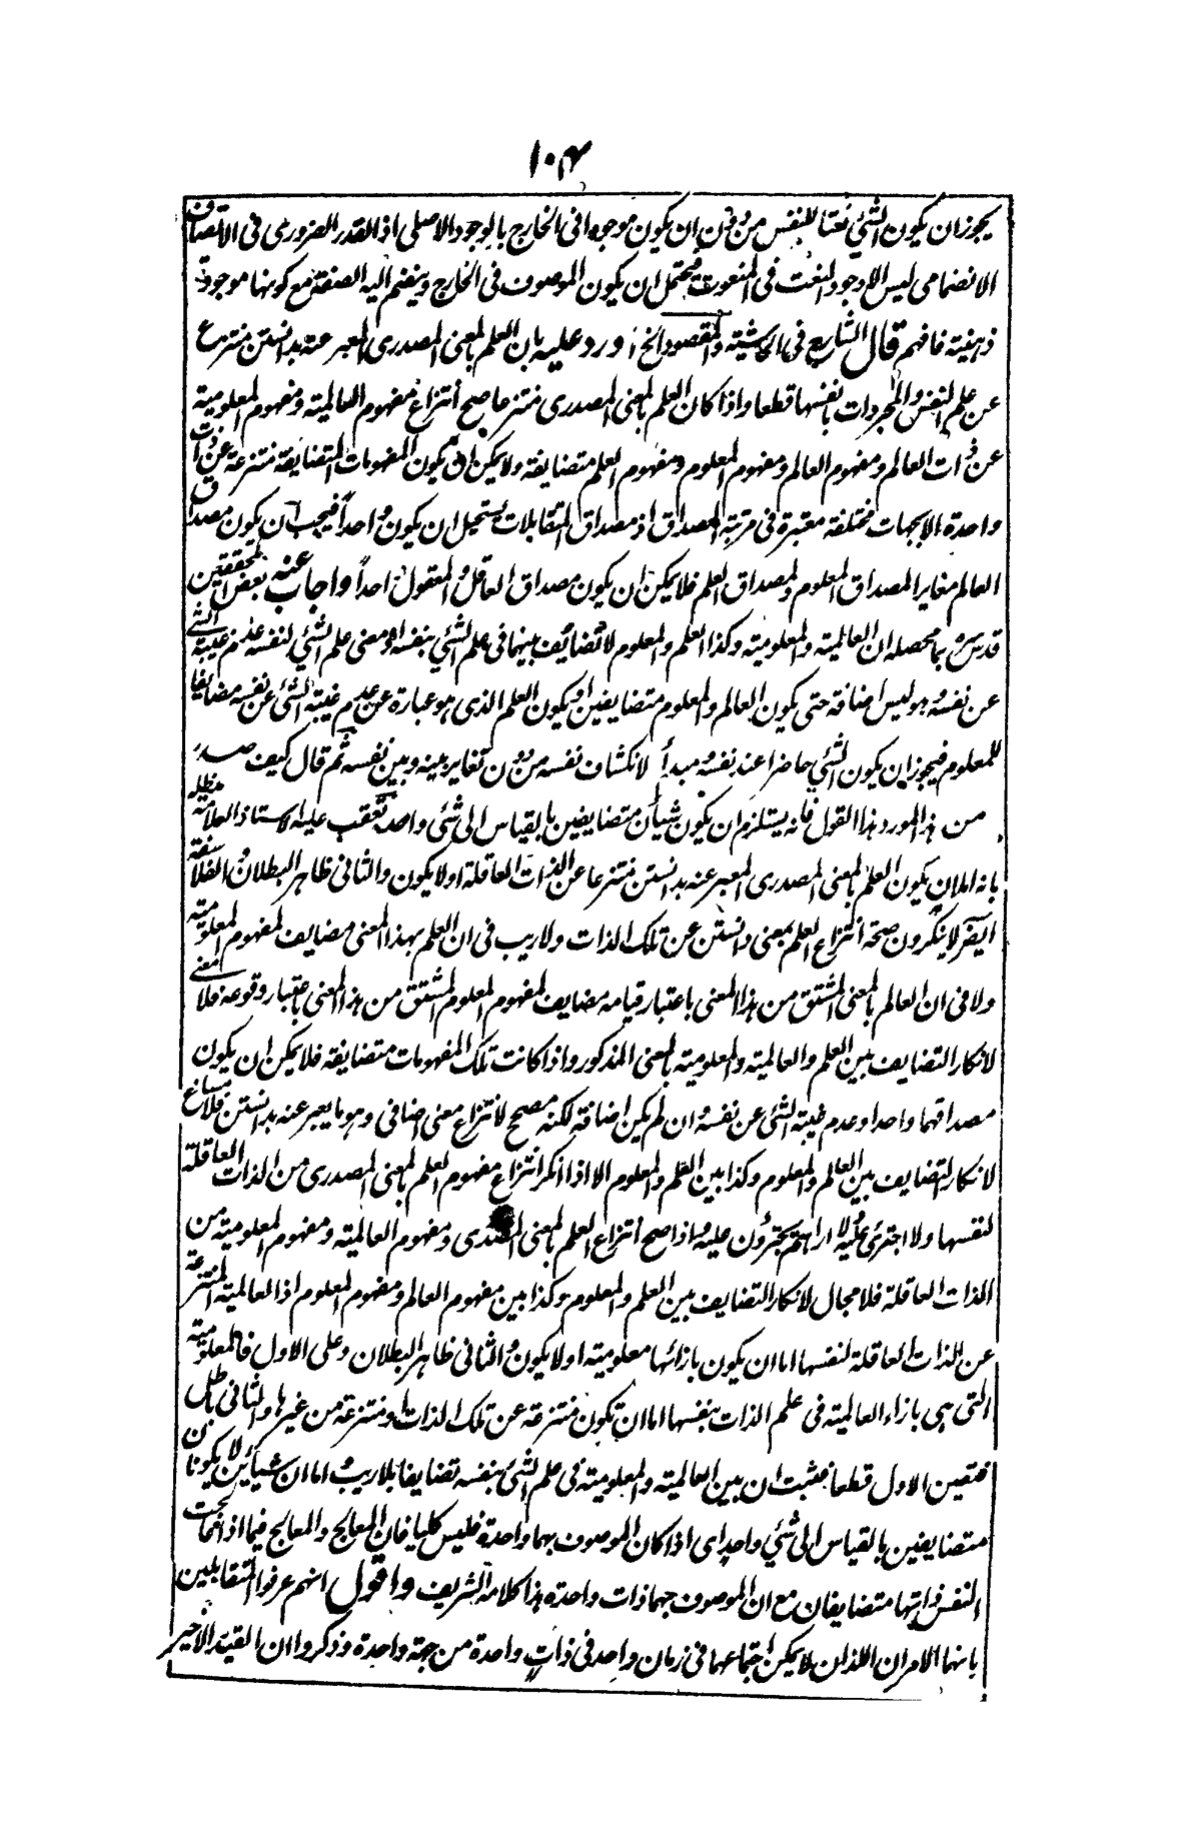 ١٠٤
يجوز ان يكون الشئ نعتا للنفس من دون ان يكون موجودا فى الخارج بالوجود الاصلى اذ القدر الضرورى فى الاتصاف
الانضمامى ليس الا وجود النعت فى المنعوت فيحتمل ان يكون الموصوف فى الخارج وينضم اليه الصفة مع كونها موجودة
ذهنية فافهم قال الشارح فى الحاشية والمقصود الخ اورد عليه بان العلم بالمعنى المصدرى المعبر عنه بدانستن منتزع
عن علم النفس والمجردات بانفسها قطعا واذا كان العلم بالمعنى المصدرى منتزعا صح انتزاع مفهوم العالمية ومفهوم المعلومية
عن ذات العالم ومفهوم العالم ومفهوم المعلوم ومفهوم العلم متضايفة ولا يمكن ان يكون المفهومات المتضايفة منتزعة عن ذات
واحدة الا بجهات مختلفة معتبرة فى مرتبة المصداق اذ مصداق المتقابلات يستحيل ان يكون واحدا فيجب ان يكون مصداق
العالم مغايرا لمصداق المعلوم ولمصداق العلم فلا يمكن ان يكون مصداق العاقل والمعقول واحدا واجاب عنه بعض المحققين
قدس سره بما محصله ان العالمية والمعلومية وكذا العلم والمعلوم لا تضائف بينهما فى علم الشئ بنفسه اذ معنى علم الشئ لنفسه عدم غيبة الشئ
عن نفسه وهو ليس اضافة حتى يكون العالم والمعلوم متضايفين او يكون العلم الذى هو عبارة عن عدم غيبة الشئ عن نفسه مضايفا
للمعلوم فيجوز ان يكون الشئ حاضرا عند نفسه ومبدأ لانكشاف نفسه من دون تغاير بينه وبين نفسه ثم قال كيف صدر
من هذا المورد هذا القول فانه يستلزم ان يكون شيأن متضايفين بالقياس الى شئ واحد تعقب عليه الاستاذ العلامة مد ظله
بانه اما ان يكون العلم بالمعنى المصدرى المعبر عنه بدانستن منتزعا عن الذات العاقلة اولا يكون والثانى ظاهر البطلان والفلاسفة
ايضا لا ينكرون صحة انتزاع العلم بمعنى دانستن عن تلك الذات ولا ريب فى ان العلم بهذا المعنى مضايف لمفهوم المعلومية
ولا فى ان العالم بالمعنى المشتق من هذا المعنى باعتبار قيامه مضايف لمفهوم المعلوم المشتق من هذا المعنى باعتبار وقوعه فلا معنى
لانكار التضايف بين العلم والعالمية والمعلومية بالمعنى المذكور واذا كانت تلك المفهومات متضايفة فلا يمكن ان يكون
مصداقهما واحدا وعدم غيبة الشئ عن نفسه وان لم يكن اضافة لكنه مصحح لانتزاع معنى اضافى وهو ما يعبر عنه بدانستن فلا مساغ
لانكار التضايف بين العالم والمعلوم وكذا بين العلم والمعلوم الا اذا انكر انتزاع مفهوم العلم بالمعنى المصدرى من الذات العاقلة
لنفسها ولا اجترئ عليه ولا اراهم يجترؤن عليه واذا صح انتزاع العلم بالمعنى المصدرى ومفهوم العالمية ومفهوم المعلومية من
الذات العاقلة فلا مجال لانكار التضايف بين العلم والمعلوم وكذا بين مفهوم العالم ومفهوم المعلوم اذ العالمية المنتزعة
عن الذات العاقلة لنفسها اما ان يكون بازائها معلومية اولا يكون والثانى ظاهر البطلان وعلى الاول فالمعلومية
التى هى بازاء العالمية فى علم الذات بنفسها اما ان تكون منتزعة عن تلك الذات او منتزعة من غيرها والثانى باطل
فتعين الاول قطعا فثبت ان بين العالمية والمعلومية فى علم الشئ بنفسه تضايفا بلا ريب واما ان شيأين لا يكونان
متضايفين بالقياس الى شئ واحد اى اذا كان الموصوف بهما واحدة فليس كليا فان المعالج والمعالج فيما اذا عالجت
النفس ذاتها متضايفان مع ان الموصوف بهما ذات واحدة هذا كلامه الشريف واقول انهم عرفوا المتقابلين
بانهما الامران اللذان لا يمكن اجتماعهما فى زمان واحد فى ذات واحدة من جهة واحدة وذكروا ان القيد الاخير